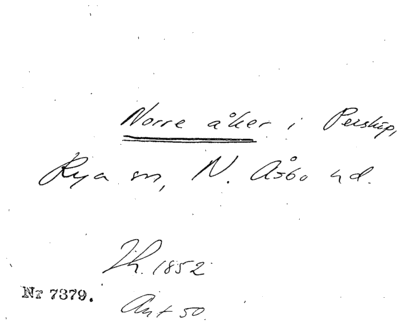 Norre åker i Perstorp,
Rya sn, N. Åsbo hd.
Th. 1852
Nr 7379.
Ant 50.